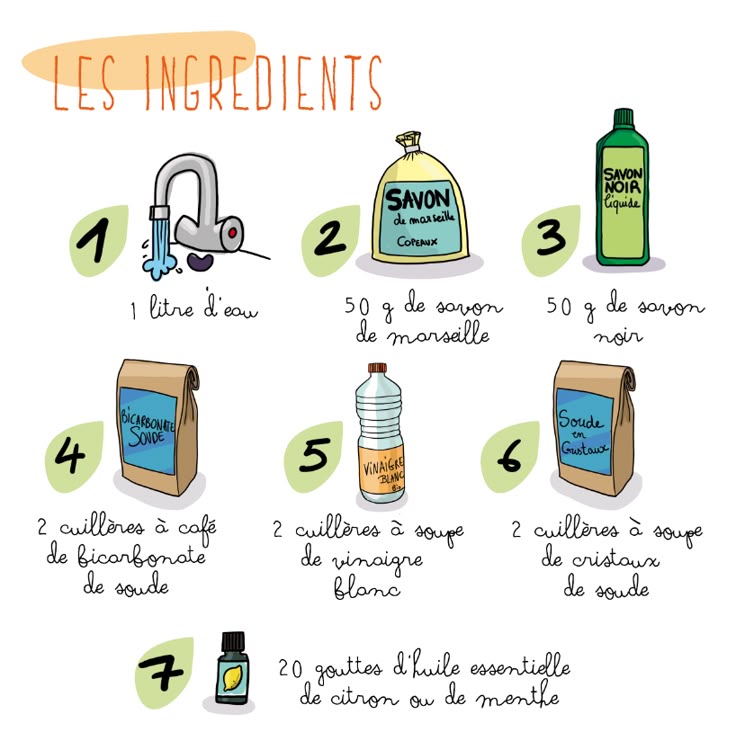 LES INGREDIENTS
1
2
SAVON
de marseille
COPEAUX
3
SAVON
NOIR
liquide
1 litre d'eau
50 g de savon
de marseille
50 g de savon
noir
4
BICARBONATE
SOUDE
5
VINAIGRE
BLANC
Bio
6
Soude
en
Cristaux
2 cuillères à café
de bicarbonate
de soude
2 cuillères à soupe
de vinaigre
blanc
2 cuillères à soupe
de cristaux
de soude
7
20 gouttes d'huile essentielle
de citron ou de menthe